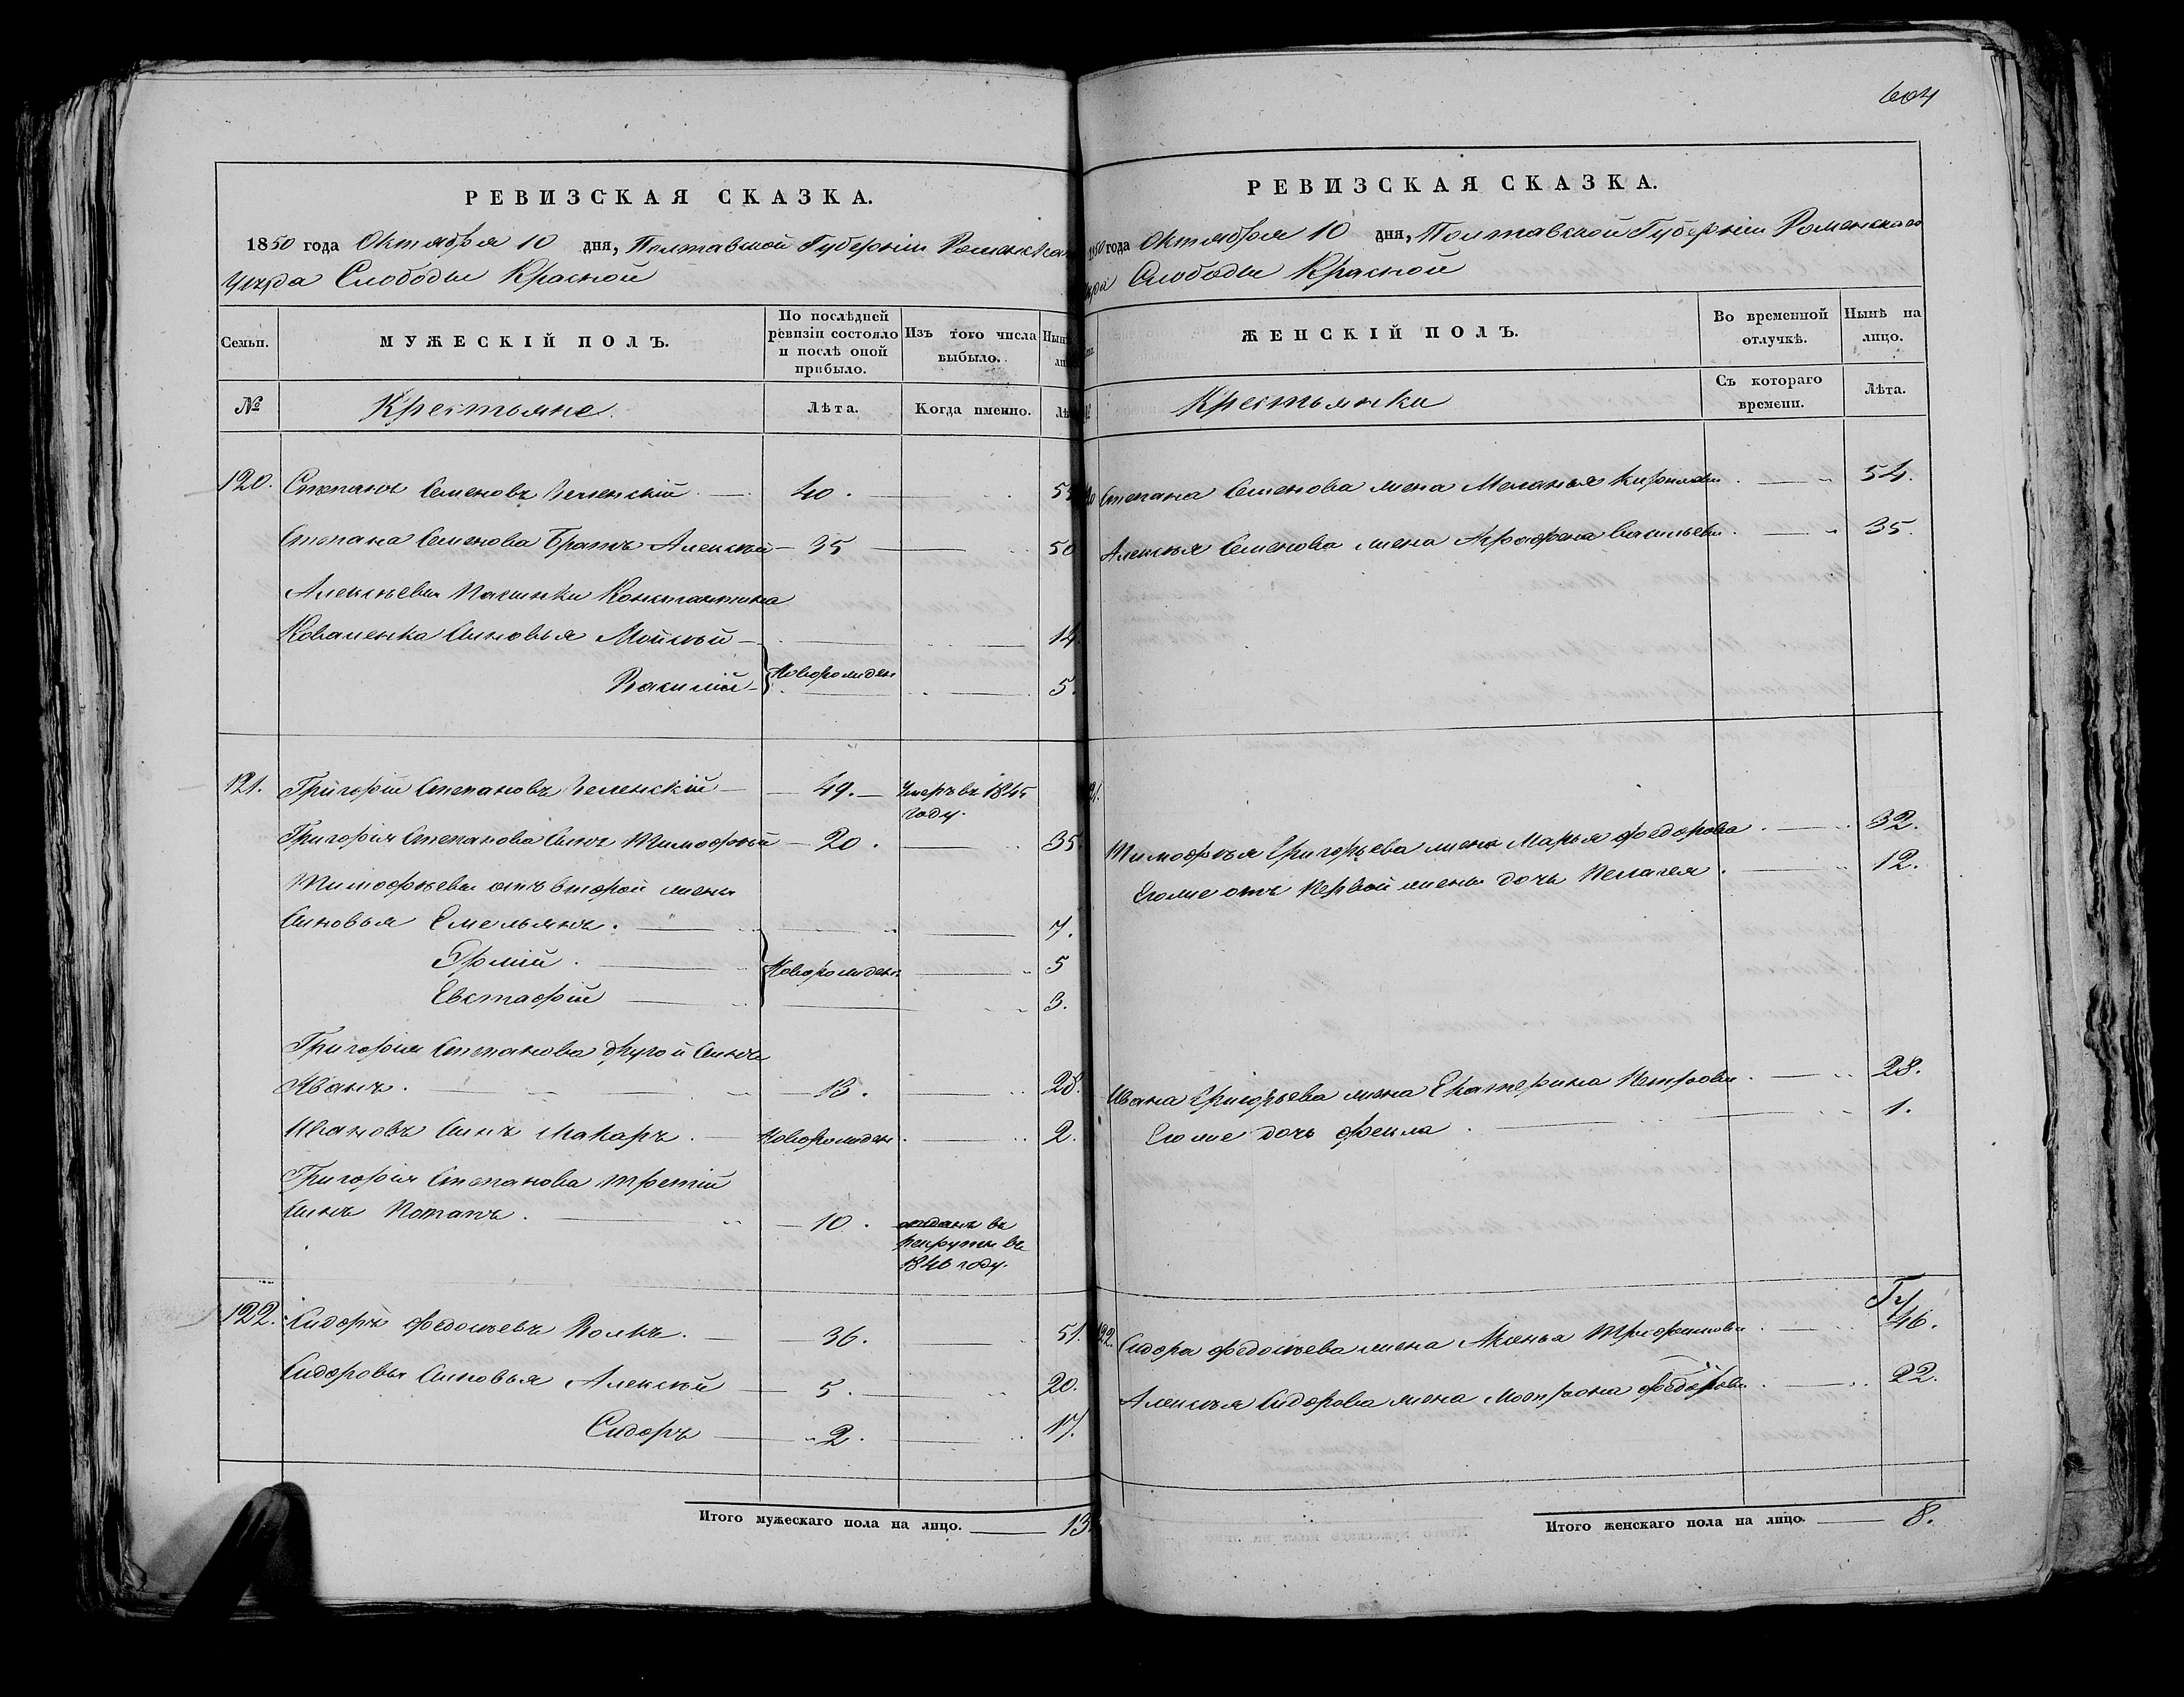 РЕВИЗСКАЯ СКАЗКА.
1850 года Октября 10 дня, Полтавской Губерніи Роменскаго
уѣзда Слободы Красной
Семьи.
МУЖЕСКІЙ ПОЛЪ.
По послѣдней ревизіи состояло и послѣ оной прибыло.
Изъ того числа выбыло.
№
Крестьяне
Лѣта.
Когда именно.
120. Степанъ Семеновъ Зеленскій 40.
Степана Семенова Братъ Алексѣй 35 50
Алексѣевы Пасинки Константина
Коваленка Сыновья Мойсѣй 14
Василій Новорожден 5.
121. Григорій Степановъ Зеленскій 49. Умеръ въ 1845
году.
Григорія Степанова Сынъ Тимофѣй 20. 35
Тимофѣевы отъ второй жены
Сыновья Емельянъ. 7.
Ермій. Новорожден. 5
Евстафій 3.
Григорія Степанова другой Сынъ
Иванъ. 13. 28.
Ивановъ Сынъ Макаръ. Новорожден. 2.
Григорія Степанова третій
Сынъ Потапъ. 10. отданъ въ
рекруты въ
1846 году.
122. Сидоръ Федосѣевъ Волкъ. 36. 51.
Сидоровы Сыновья Алексѣй 5. 20.
Сидоръ 2. 17.
Итого мужескаго пола на лицо. 13
604
РЕВИЗСКАЯ СКАЗКА.
1850 года Октября 10 дня, Полтавской Губерніи Роменскаго
Слободы Красной
ЖЕНСКІЙ ПОЛЪ.
Во временной отлучкѣ.
Нынѣ на лицо.
Крестьянки
Съ котораго времени.
Лѣта.
Степана Семенова жена Меланья Кирилова 54.
Алексѣя Семенова жена Агрофена Васильева 35.
Тимофѣя Григорьева жена Марья Федорова 32.
Егоже отъ первой жены дочь Пелагея. 12.
Ивана Григорьева жена Екатерина Петрова 28.
Егоже дочь Фекла. 1.
122. Сидора Федосѣева жена Аксенья Трофимова 46.
Алексѣя Сидорова жена Мотрона Федорова 22.
Итого женскаго пола на лицо. 8.